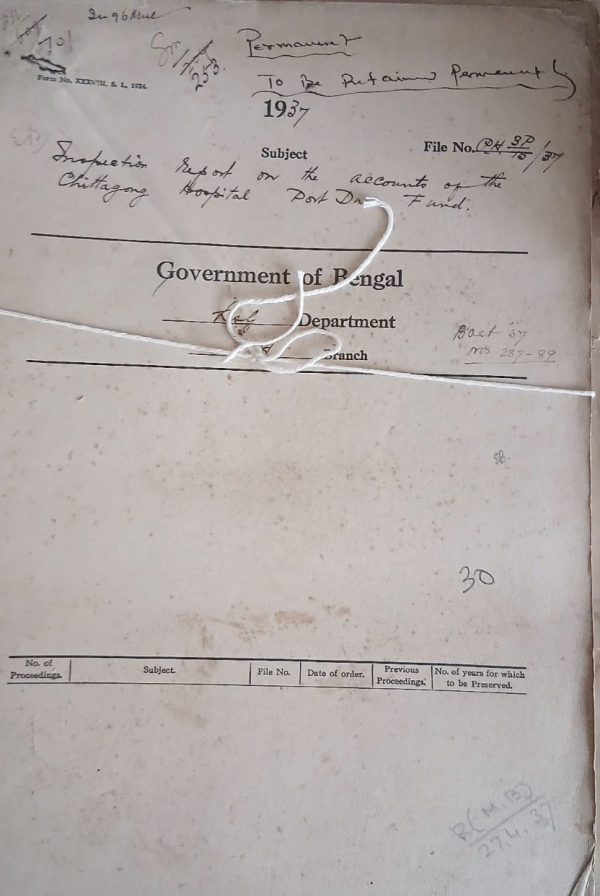 Permanent
To be Retained Permanently
253.
Form No. XXXVIII, S. I., 1924.
1937
Subject
File No. /37
Inspection Report on the accounts of the
Chittagong Hospital Port Fund.
Government of Bengal
Department
Branch
'37
Nos 287-89
30
No. of Proceedings. Subject. File No. Date of order. Previous Proceedings. No. of years for which to be Preserved.
R(M.B)
27.4.37